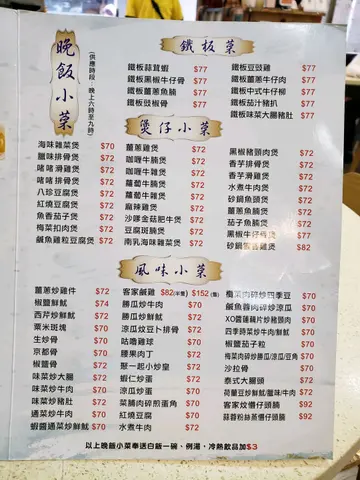 晚飯小菜
(供應時段：晚上六時至九時)
鐵板菜
鐵板蒜茸蝦 $77
鐵板黑椒牛仔骨 $77
鐵板薑蔥魚腩 $77
鐵板豉椒骨 $77
鐵板豆豉雞 $77
鐵板薑蔥牛肉 $77
鐵板中式牛仔柳 $77
鐵板茄汁豬扒 $77
鐵板味菜大腸豬肚 $77
煲仔小菜
海味雜菜煲 $70
臘味排骨煲 $72
啫啫滑雞煲 $72
啫啫排骨煲 $72
八珍豆腐煲 $72
紅燒豆腐煲 $72
魚香茄子煲 $72
梅菜扣肉煲 $72
鹹魚雞粒豆腐煲 $72
薑蔥雞煲 $72
咖喱牛腩煲 $72
咖喱牛雜煲 $72
蘿蔔牛腩煲 $72
蘿蔔牛雜煲 $72
麻辣雞煲 $72
沙嗲金菇肥牛煲 $72
豆腐斑腩煲 $72
南乳海味雜菜煲 $72
黑椒豬頸肉煲 $72
香芋排骨煲 $72
香芋滑雞煲 $72
水煮牛肉煲 $72
砂鍋魚頭煲 $72
薑蔥魚腩煲 $72
茄子魚腩煲 $72
黑椒牛仔骨煲 $77
砂鍋 雞煲 $82
風味小菜
薑蔥炒雞件 $72
椒鹽鮮魷 $74
西芹炒鮮魷 $72
粟米斑塊 $70
生炒骨 $70
京都骨 $70
椒鹽骨 $72
味菜炒大腸 $72
味菜炒牛肉 $70
味菜炒豬肚 $72
通菜炒牛肉 $70
蝦醬通菜炒鮮魷 $70
客家鹹雞 $82(半隻) $152(隻)
勝瓜炒牛肉 $70
勝瓜炒鮮魷 $70
涼瓜炆豆卜排骨 $70
咕嚕雞球 $70
腰果肉丁 $72
聚一起小炒皇 $72
蝦仁炒蛋 $72
涼瓜炒蛋 $70
菜脯肉碎煎蛋角 $70
紅燒豆腐 $70
水煮牛肉 $72
欖菜肉碎炒四季豆 $70
鹹魚蓉肉碎炒涼瓜 $70
XO醬蓮藕片炒豬頸肉 $70
四季時菜炒牛肉/鮮魷 $70
椒鹽茄子粒 $70
梅菜肉碎炒勝瓜/涼瓜/豆角 $70
沙拉骨 $70
泰式大腸頭 $72
荷蘭豆炒鮮魷/臘味/牛肉 $72
客家炆懵仔頭腩 $92
蒜蓉粉絲蒸懵仔頭腩 $92
以上晚飯小菜奉送白飯一碗、例湯，冷熱飲品加$3